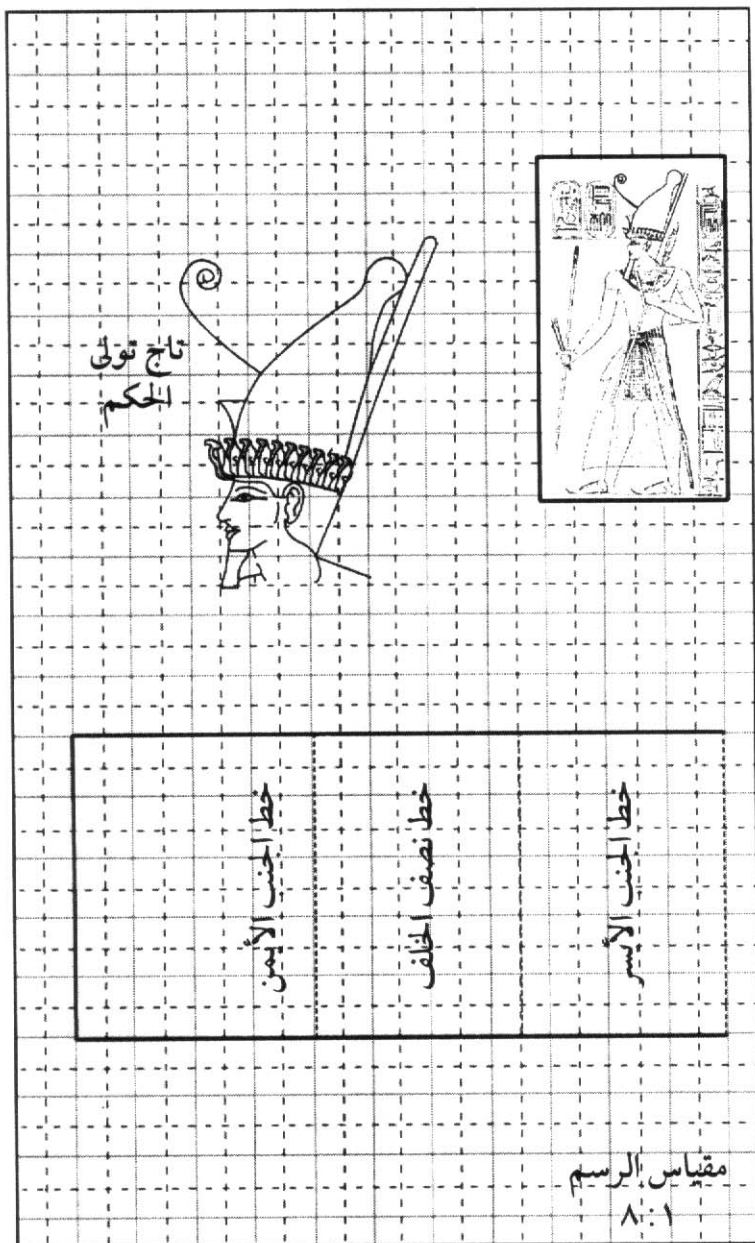 تاج تولى
الحكم
خط الجنب الأيسر
خط نصف الخلف
خط الجنب الأيمن
مقياس الرسم
٨:١